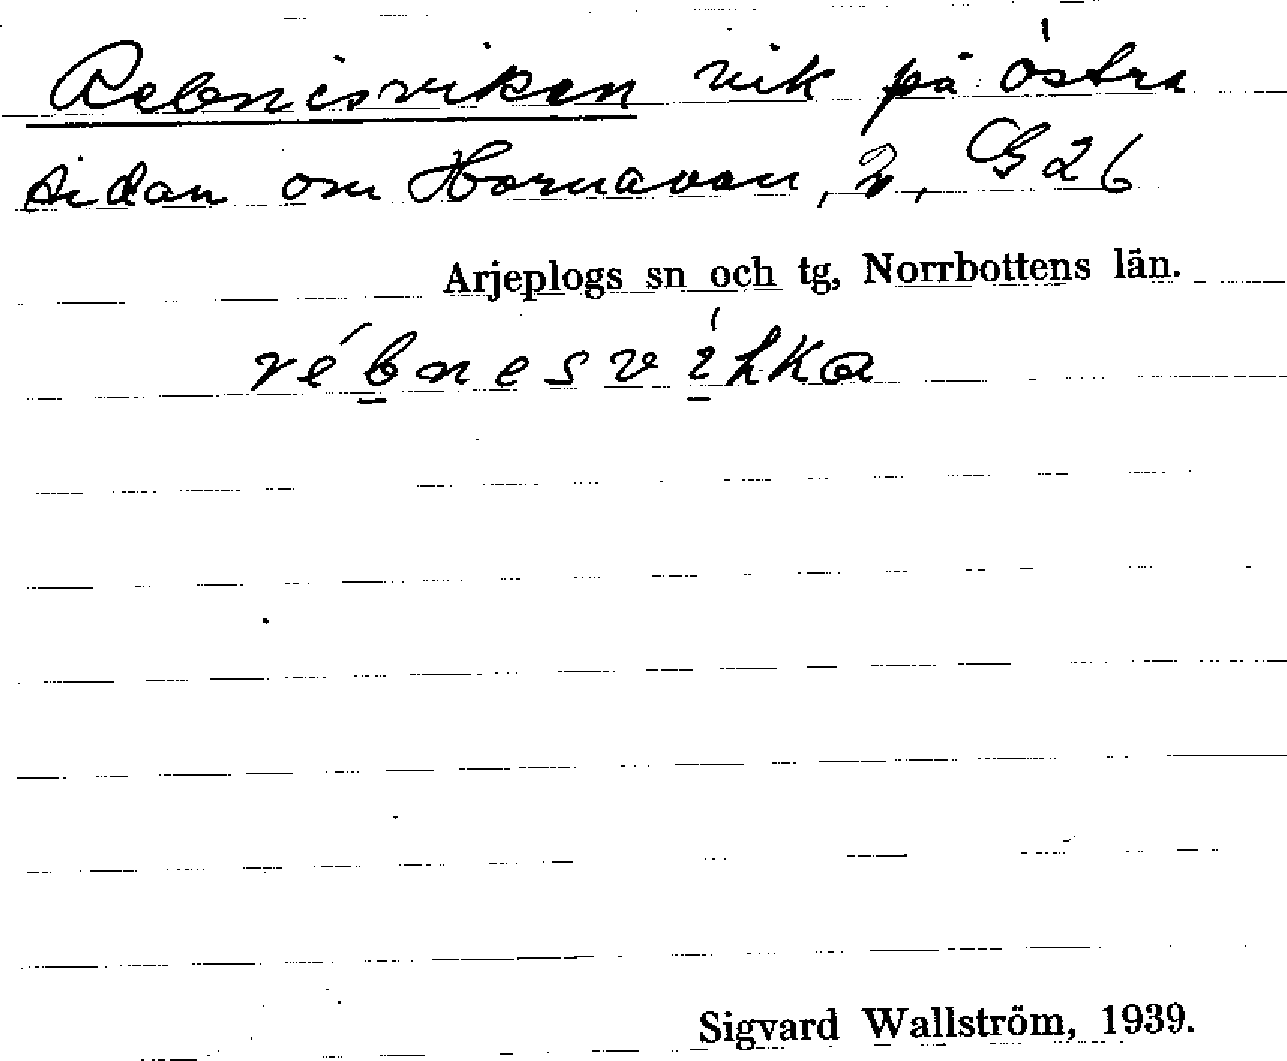 Rebnisviken vik på östra
sidan om Hornavan, G26
Arjeplogs sn och tg, Norrbottens län.
rébnesvíhka
Sigvard Wallström, 1939.